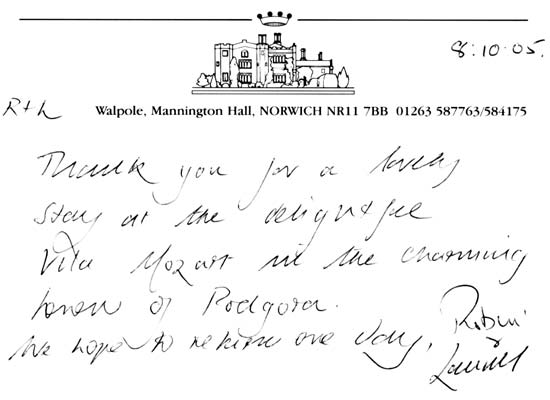 8.10.05.
R + L
Walpole, Mannington Hall, NORWICH NR11 7BB 01263 587763/584175
Thank you for a lovely
stay at the delightful
Vila Mozart in the charming
town of Podgora.
We hope to return one day,
Robin
&
Laurel